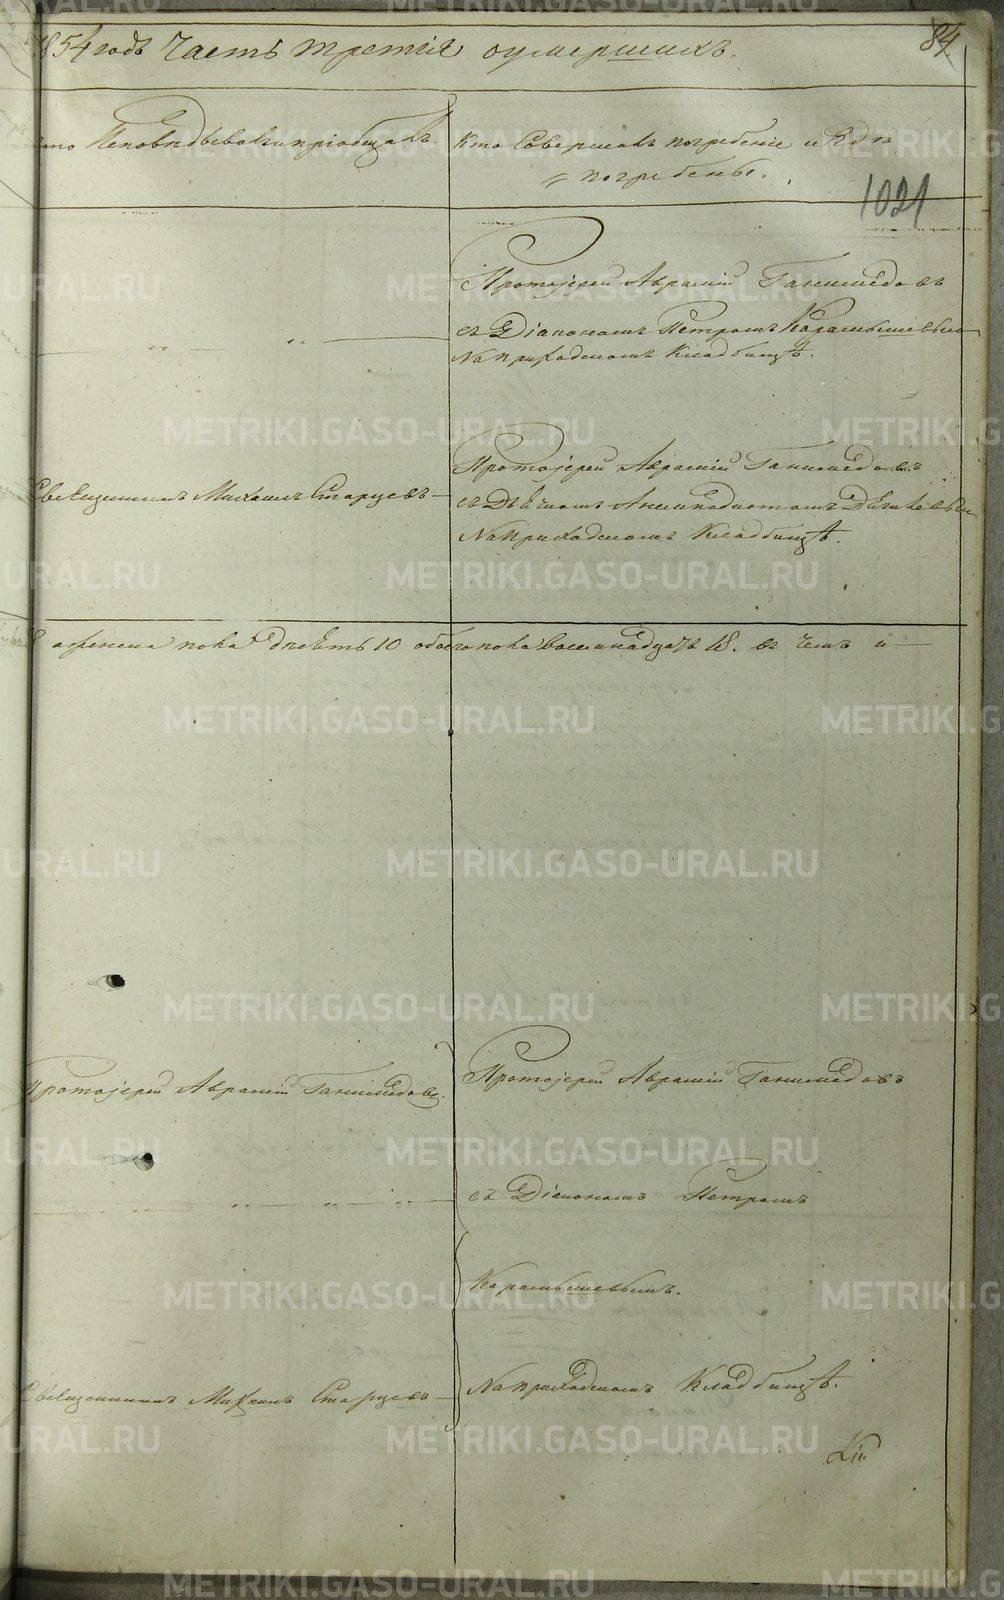 1854 годъ Часть третія оумершихъ.
84
Кто Исповѣдывалъ и пріобщалъ.
Кто Совершалъ погребеніе и гдѣ
погребены.
1021
Протоіерей Авраамій Ганимедовъ
съ Діакономъ Петромъ Карамышевымъ
На приходскомъ Кладбищѣ.
Священникъ Михаилъ Старцевъ
Протоіерей Авраамій Ганимедовъ
съ Дьячкомъ Анемподистомъ
На Приходскомъ Кладбищѣ.
а женска пола десять 10 обоего пола восемнадцать 18. въ чемъ и
METRIKI.GASO-URAL.RU
Протоіерей Авраамій Ганимедовъ.
Протоіерей Авраамій Ганимедовъ
съ Діакономъ Петромъ
Карамышевымъ.
Священникъ Михаилъ Старцевъ
На приходскомъ Кладбищѣ.